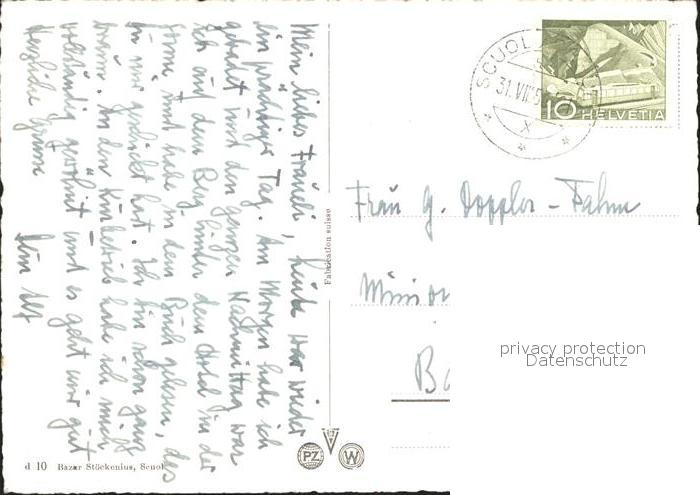 Mein liebes Fraueli, heute war wieder
ein prächtiger Tag. Am Morgen habe ich
gebadet und den ganzen Nachmittag war
ich auf dem Berg hinter dem Wald in der
Sonne und habe in dem Buch gelesen, das
Du mir geschickt hast. Ich bin schon ganz
braun. An den Kurbetrieb habe ich mich
vollständig gewöhnt und es geht mir gut
Herzliche Grüsse
Dein
Fabrication suisse
SCUOL
31.VII.5
X
10 HELVETIA
Frau G. Doppler-Fahm
privacy protection
Datenschutz
PZ
W
d 10 Bazar Stöckenius, Scuol